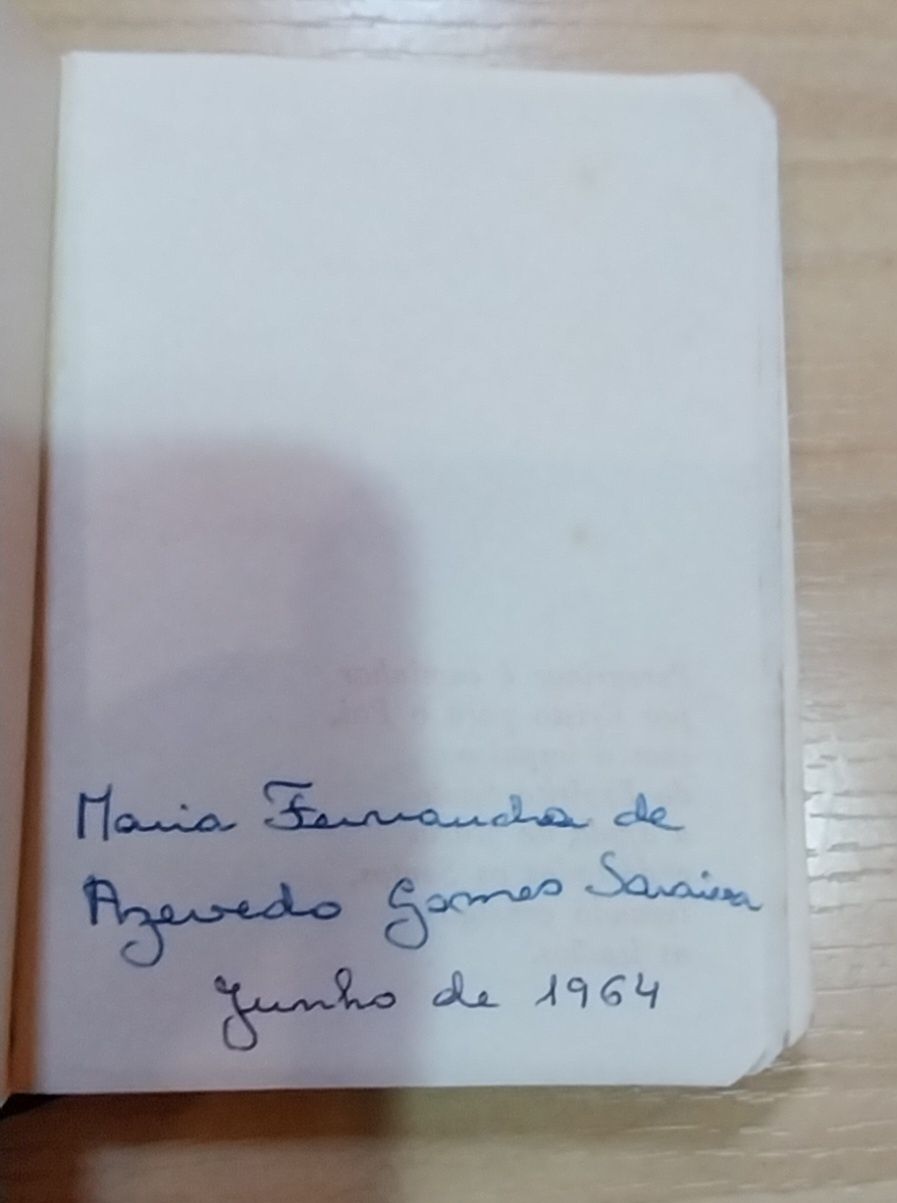 Maria Fernanda de
Azevedo Gomes Saraiva
Junho de 1964